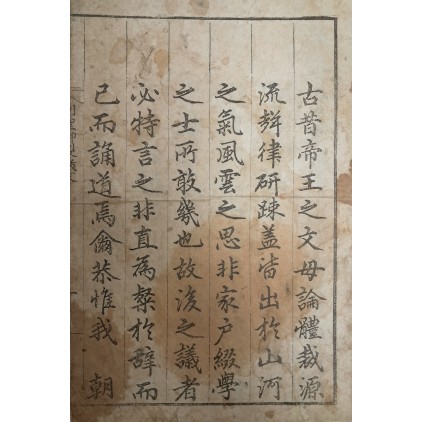 古昔帝王之文毋論體裁源
流聲律研踈盖皆出於山河
之氣風雲之思非家户綴學
之士所敢幾也故後之議者
必特言之非直為粲於辭而
已而誦道焉爾恭惟我 朝